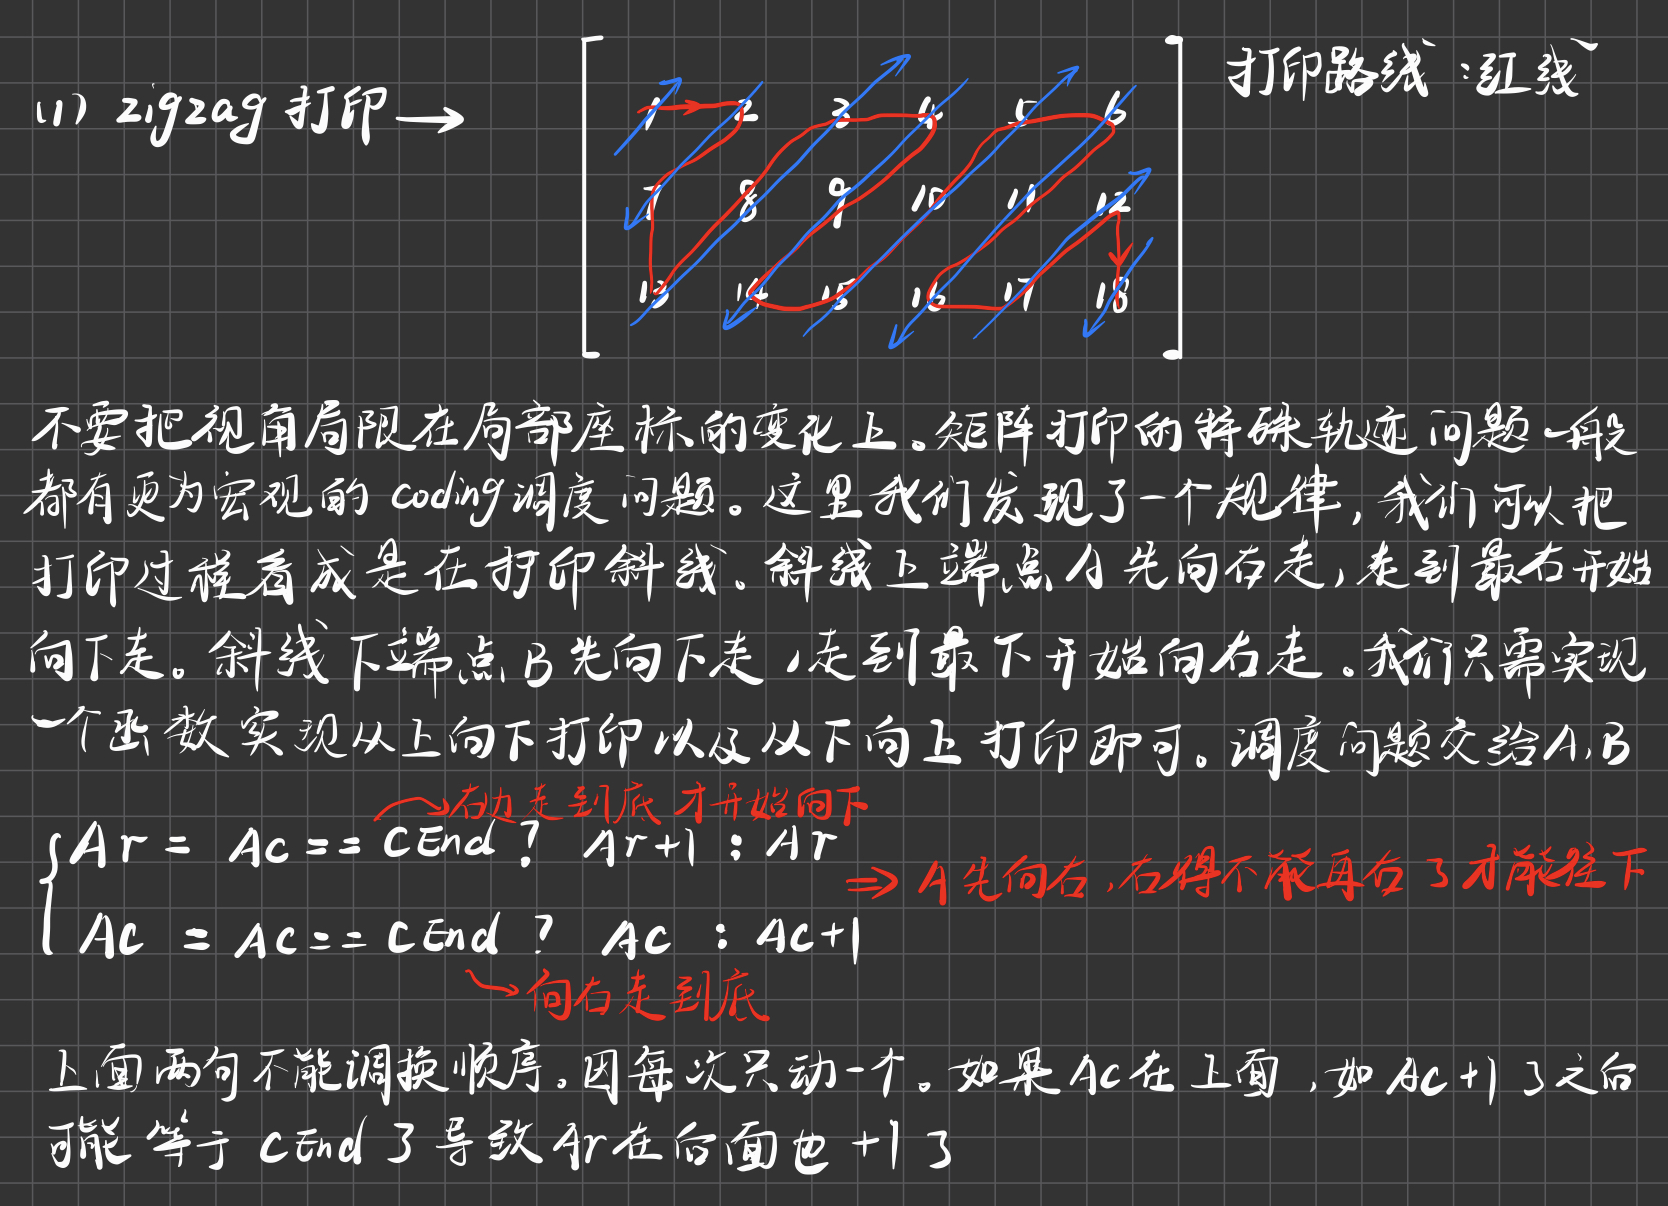 (1) zigzag 打印 →
打印路线：红线
1 2 3 4 5 6
7 8 9 10 11 12
13 14 15 16 17 18
不要把视角局限在局部座标的变化上。矩阵打印的特殊轨迹问题一般
都有更为宏观的 coding 调度问题。这里我们发现了一个规律，我们可以把
打印过程看成是在打印斜线。斜线上端点A先向右走，走到最右开始
向下走。斜线下端点B先向下走，走到最下开始向右走。我们只需实现
一个函数实现从上向下打印以及从下向上打印即可。调度问题交给A,B
→右边走到底才开始向下
Ar = Ac == CEnd ? Ar+1 : Ar
⇒ A先向右，右得不能再右了才能往下
Ac = Ac == CEnd ? Ac : Ac+1
→向右走到底
上面两句不能调换顺序。因每次只动一个。如果Ac在上面，如Ac+1了之后
可能等于CEnd了导致Ar在后面也+1了